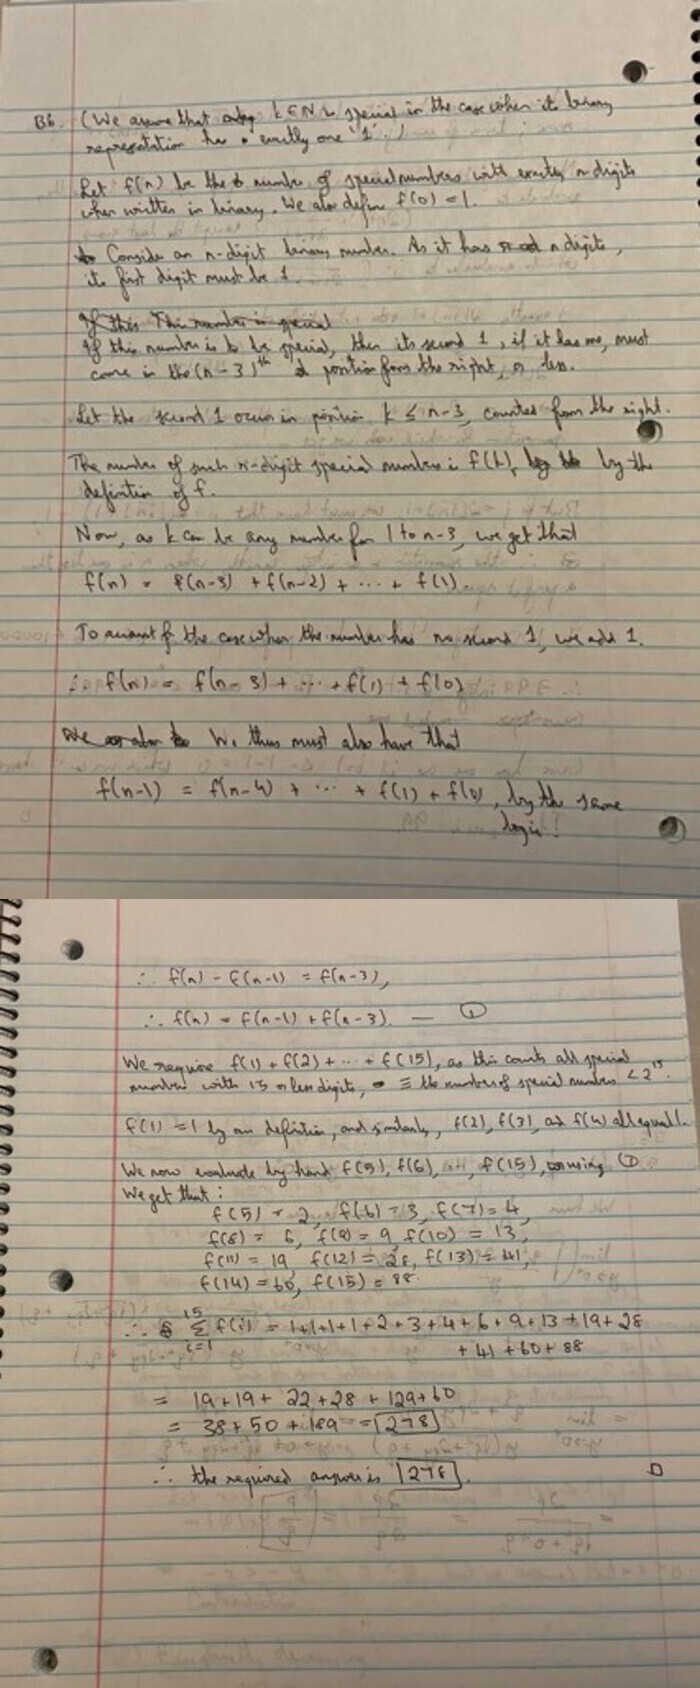 B6. (We assume that any k ∈ N is special in the case when its binary
representation has exactly one '1'.)
Let f(n) be the number of special numbers with exactly n digits
when written in binary. We also define f(0) = 1.
Consider an n-digit binary number. As it has n digits,
its first digit must be 1.
If this The number is special
If this number is to be special, then its second 1, if it has one, must
come in the (n-3)th position from the right, or less.
Let the second 1 occur in position k ≤ n-3, counted from the right.
The number of such n-digit special numbers is f(k), by the
definition of f.
Now, as k can be any number from 1 to n-3, we get that
f(n) = f(n-3) + f(n-2) + ... + f(1)
To account for the case when the number has no second 1, we add 1.
∴ f(n) = f(n-3) + ... + f(1) + f(0)
We also We thus must also have that
f(n-1) = f(n-4) + ... + f(1) + f(0), by the same
logic!
∴ f(n) - f(n-1) = f(n-3),
∴ f(n) = f(n-1) + f(n-3). — ①
We require f(1) + f(2) + ... + f(15), as this counts all special
numbers with 15 or less digits, ≡ the number of special numbers < 2^15.
f(1) = 1 by our definition, and similarly, f(2), f(3), and f(4) all equal 1.
We now evaluate by hand f(5), f(6), ..., f(15), using ①
We get that:
f(5) = 2, f(6) = 3, f(7) = 4,
f(8) = 6, f(9) = 9, f(10) = 13,
f(11) = 19, f(12) = 28, f(13) = 41,
f(14) = 60, f(15) = 88.
∴ 15 Σ i=1 f(i) = 1+1+1+1+2+3+4+6+9+13+19+28
+41+60+88
= 19+19+22+28+129+60
= 38+50+189 = 278
∴ the required answer is 278. □